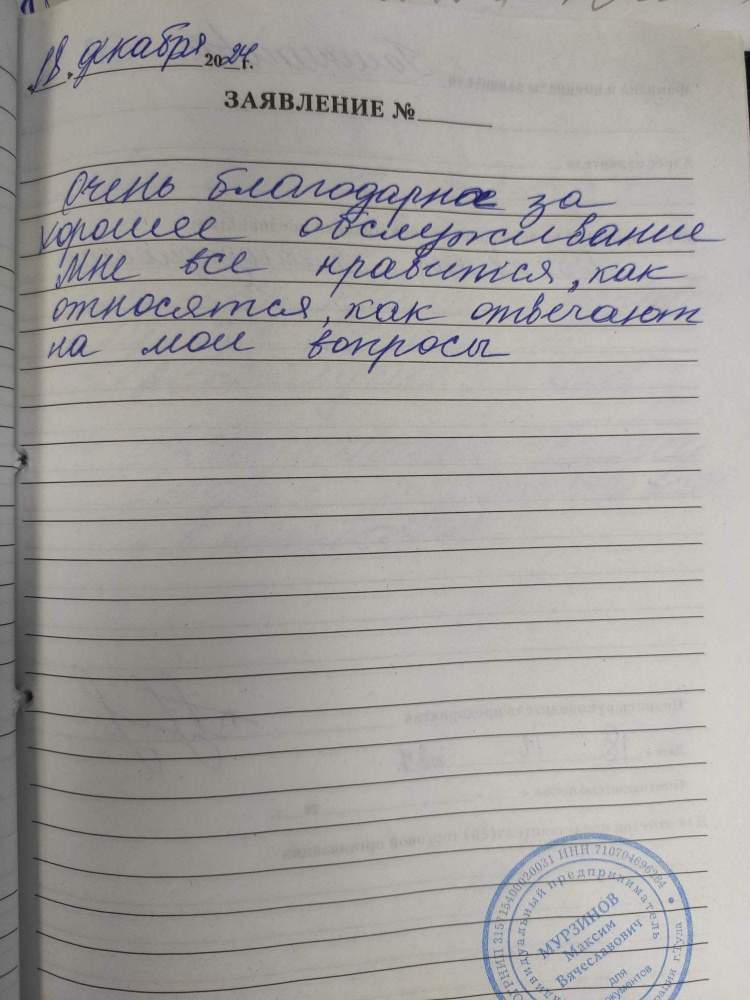 „18" декабря 2024 г.
ЗАЯВЛЕНИЕ №
Очень благодарна за
хорошее обслуживание
Мне все нравится, как
относятся, как отвечают
на мои вопросы
ОГРНИП 315715400020031 ИНН 710704696294
Индивидуальный предприниматель
МУРЗИНОВ
Максим
Вячеславович
для
документов
г.Тула